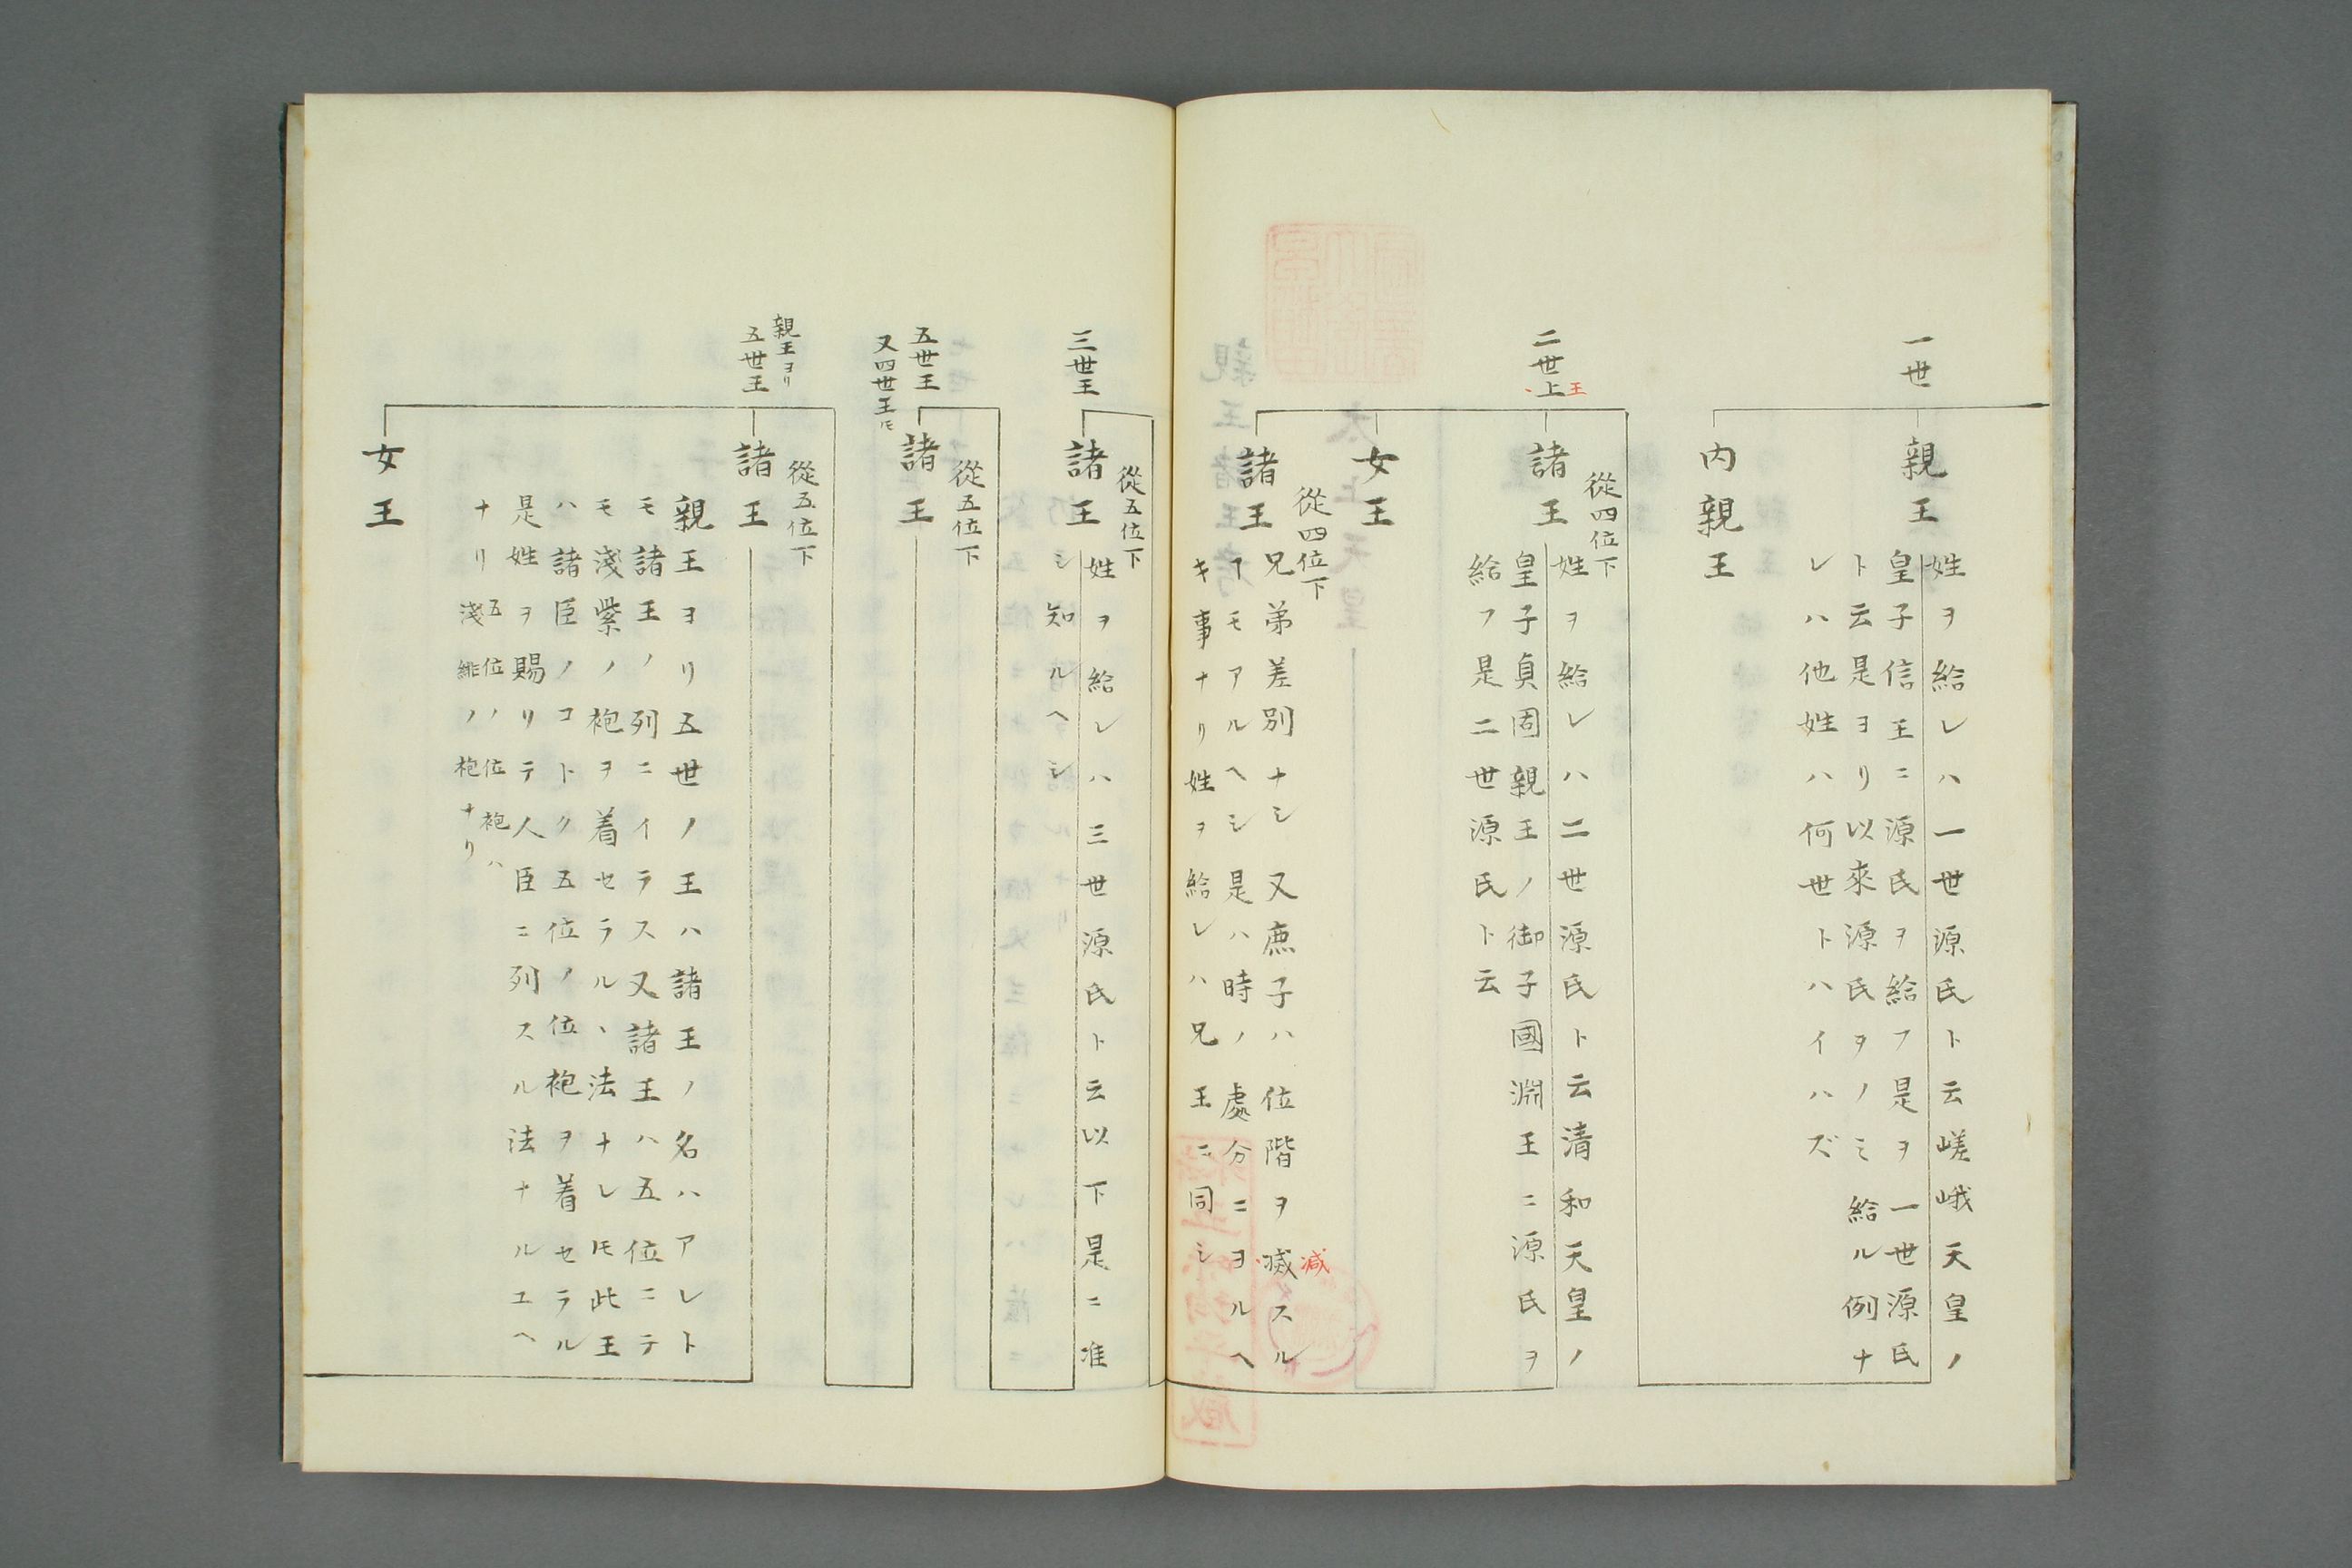 一世
親王
姓ヲ給レハ一世源氏ト云嵯峨天皇ノ
皇子信王ニ源氏ヲ給フ是ヲ一世源氏
ト云是ヨリ以來源氏ヲノミ給ル例ナ
レハ他姓ハ何世トハイハズ
内親王
二世上
王
從四位下
諸王
姓ヲ給レハ二世源氏ト云清和天皇ノ
皇子貞固親王ノ御子國淵王ニ源氏ヲ
給フ是二世源氏ト云
女王
從四位下
諸王
兄弟差別ナシ又庶子ハ位階ヲ滅スル
減
ヿモアルヘシ是ハ時ノ處分ニヨルヘ
キ事ナリ姓ヲ給レハ兄王ニ同シ
三世王
從五位下
諸王
姓ヲ給レハ三世源氏ト云以下是ニ准
シ知ルヘシ
五世王
又四世王𪜈
從五位下
諸王
親王ヨリ
五世王
從五位下
諸王
親王ヨリ五世ノ王ハ諸王ノ名ハアレト
モ諸王ノ列ニイラス又諸王ハ五位ニテ
モ淺紫ノ袍ヲ着セラルヽ法ナレ𪜈此王
ハ諸臣ノコトク五位ノ位袍ヲ着セラル
是姓ヲ賜リテ人臣ニ列スル法ナルユヘ
ナリ
五位ノ位袍ハ
淺緋ノ袍ナリ
女王